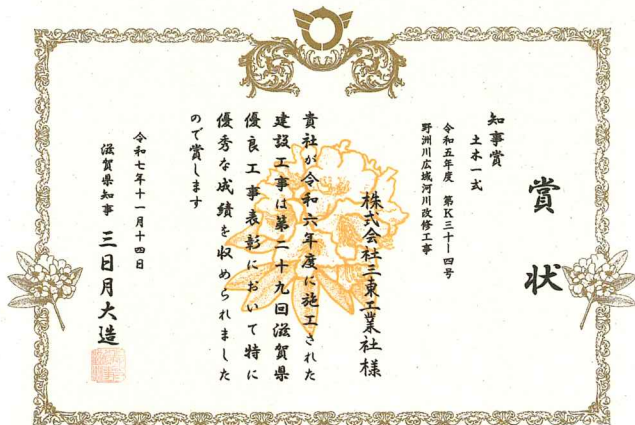 賞状
知事賞
土木一式
令和五年度 第K三十―四号
野洲川広域河川改修工事
株式会社三東工業社様
貴社が令和六年度に施工された
建設工事は第二十九回滋賀県
優良工事表彰において特に
優秀な成績を収められました
ので賞します
令和七年十一月十四日
滋賀県知事 三日月大造